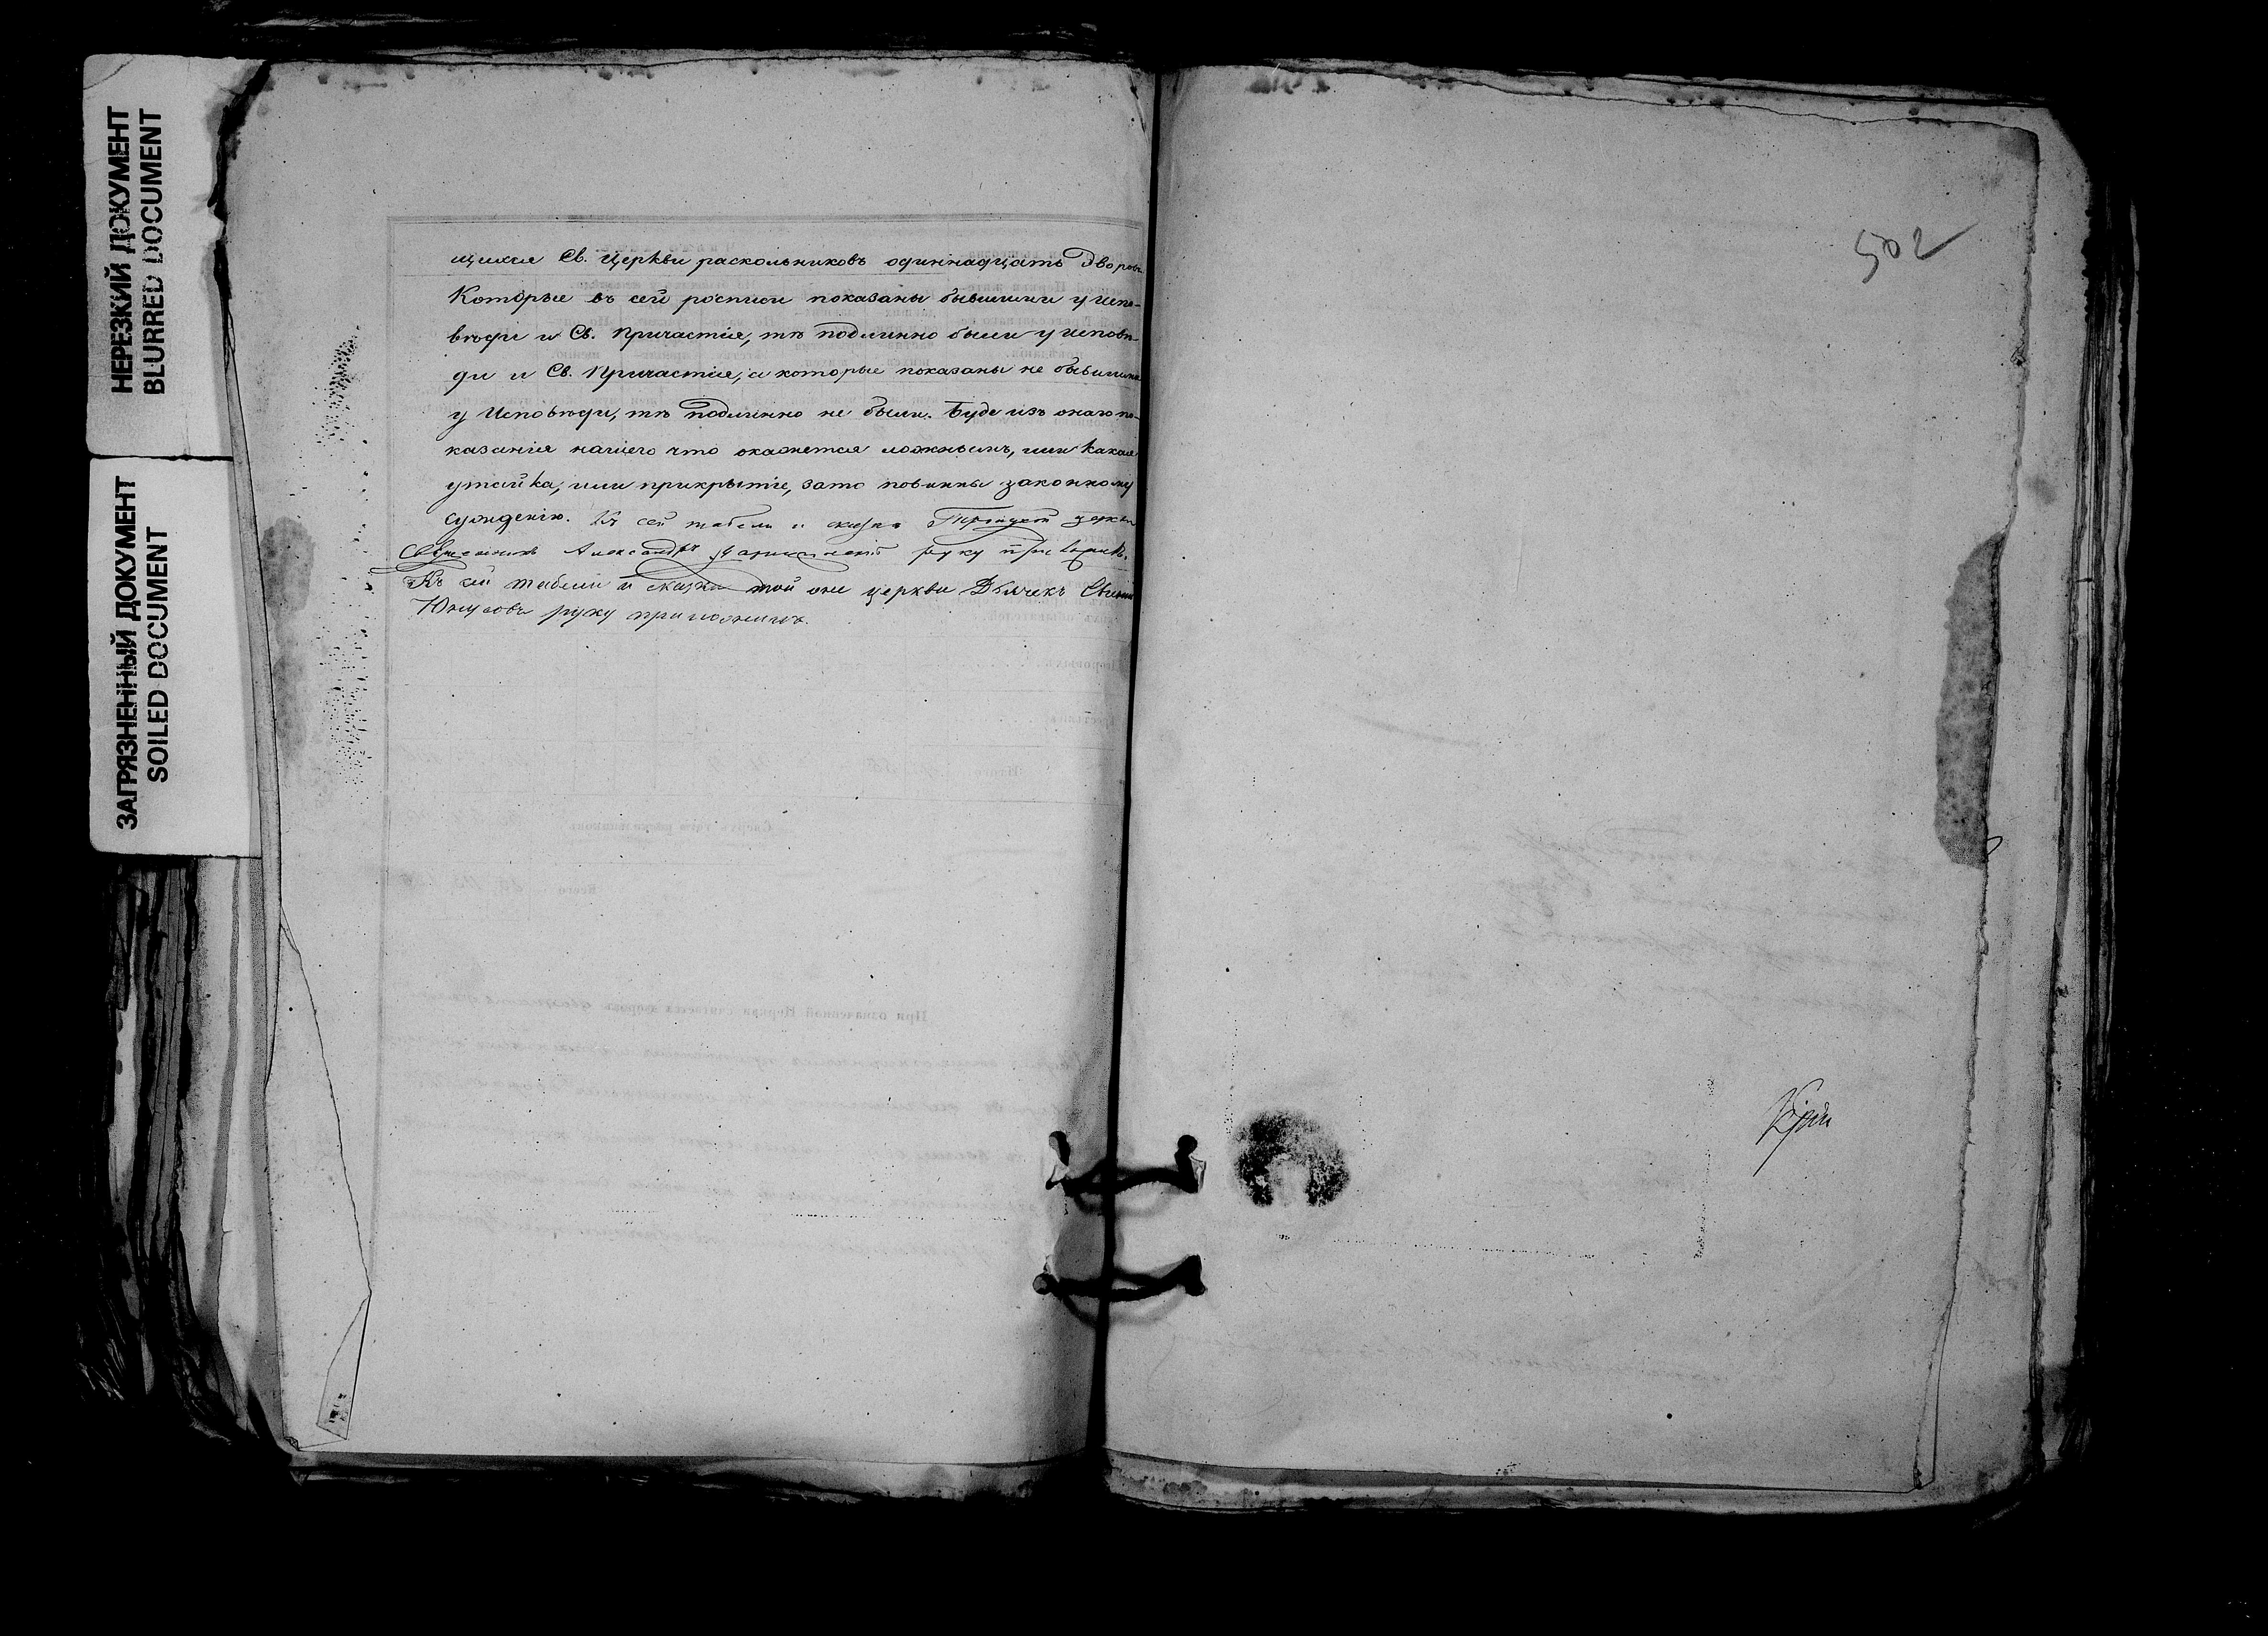 НЕРЕЗКИЙ ДОКУМЕНТ
BLURRED DOCUMENT
ЗАГРЯЗНЕННЫЙ ДОКУМЕНТ
SOILED DOCUMENT
щихся Св. Церкви раскольниковъ одиннадцать Дворовъ.
Которые въ сей росписи показаны бывшими у Испо-
вѣди и Св. Причастія, тѣ подлинно были у Исповѣ-
ди и Св. Причастія, а которые показаны не бывшими
у Исповѣди, тѣ подлинно не были. Буде изъ онаго по-
казанія нашего что окажется ложнымъ, или какая
утайка, или прикрытіе, за то повинны законному
сужденію. Къ сей табели и сказкѣ Троицкой церкви
Священникъ Александръ руку приложилъ.
Къ сей табели и сказкѣ той оне церкви Дьячекъ
руку приложилъ.
502